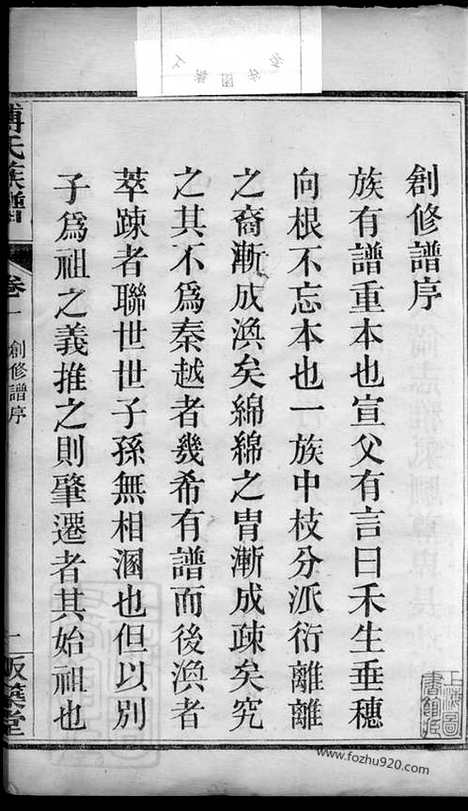 創修譜序
族有譜重本也宣父有言曰禾生垂穗
向根不忘本也一族中枝分派衍離離
之裔漸成渙矣綿綿之胄漸成疎矣究
之其不為秦越者幾希有譜而後渙者
萃疎者聯世世子孫無相溷也但以別
子為祖之義推之則肇遷者其始祖也
氏族譜
卷一
創修譜序
一
上海圖
書館藏
www.fozhu920.com